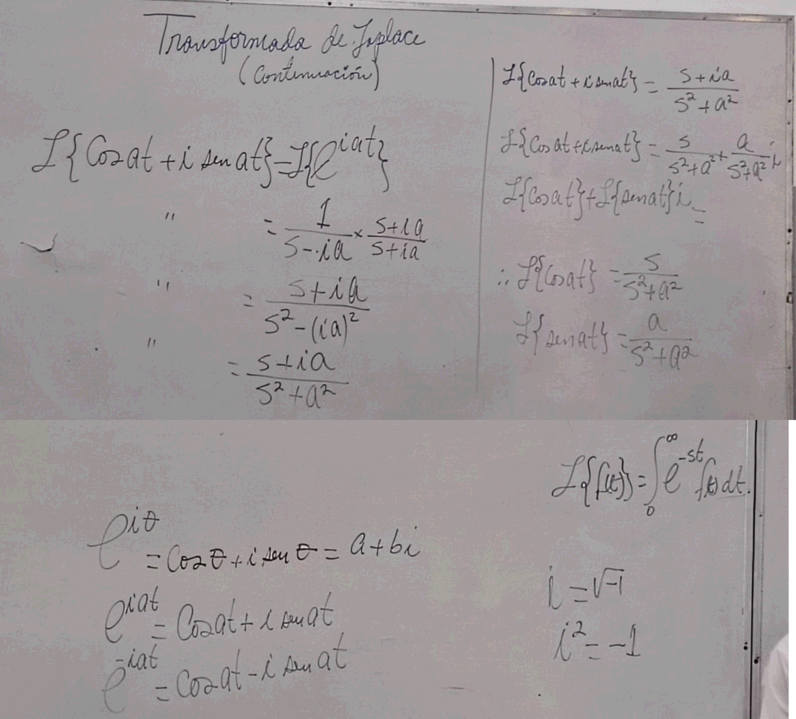 Transformada de Laplace
(Continuación)
ℒ{Cos at + i sen at} = ℒ{e^{iat}}
" = 1/(s-ia) × (s+ia)/(s+ia)
" = (s+ia)/(s²-(ia)²)
" = (s+ia)/(s²+a²)
ℒ{Cos at + i sen at} = (s+ia)/(s²+a²)
ℒ{Cos at + i sen at} = s/(s²+a²) + a/(s²+a²) i
ℒ{Cos at} + ℒ{sen at} i =
∴ ℒ{Cos at} = s/(s²+a²)
ℒ{sen at} = a/(s²+a²)
ℒ{f(t)} = ∫₀^∞ e^{-st} f(t) dt.
e^{iθ} = Cos θ + i sen θ = a + bi
e^{iat} = Cos at + i sen at
e^{-iat} = Cos at - i sen at
i = √-1
i² = -1